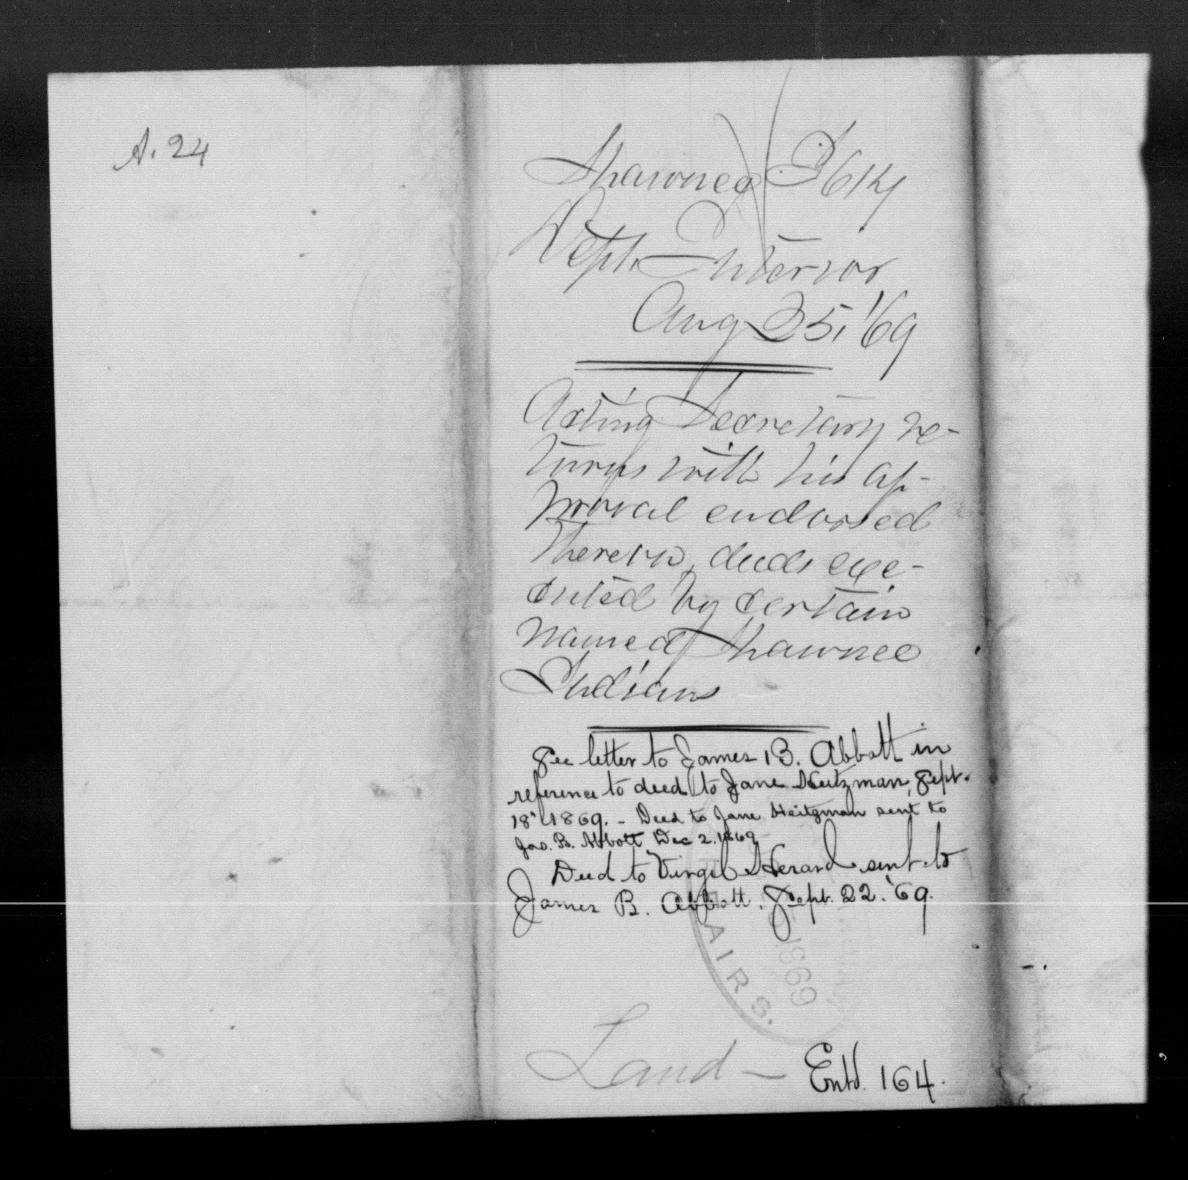 A. 24
Shawnee I 614
Dept. Interior
Aug 25, '69
Acting Secretary re-
turns with his ap-
proval endorsed
thereon, deeds exe-
cuted by certain
named Shawnee
Indians
See letter to James B. Abbott in
reference to deed to Jane Heitzman, Sept.
18" 1869. - Deed to Jane Heitzman sent to
Jas. B. Abbott Dec 2. 1869
Deed to Virgil Herard sent to
James B. Abbott. Sept. 22. '69.
AIRS.
1869
Land - Entd. 164.